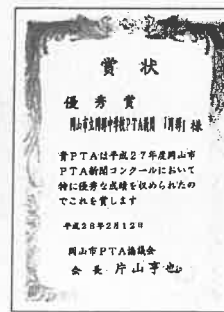 賞状
優秀賞
岡山市立岡輝中学校PTA新聞「岡輝」様
貴PTAは平成27年度岡山市
PTA新聞コンクールにおいて
特に優秀な成績を収められたの
でこれを賞します
平成28年2月12日
岡山市PTA協議会
会長 片山享也